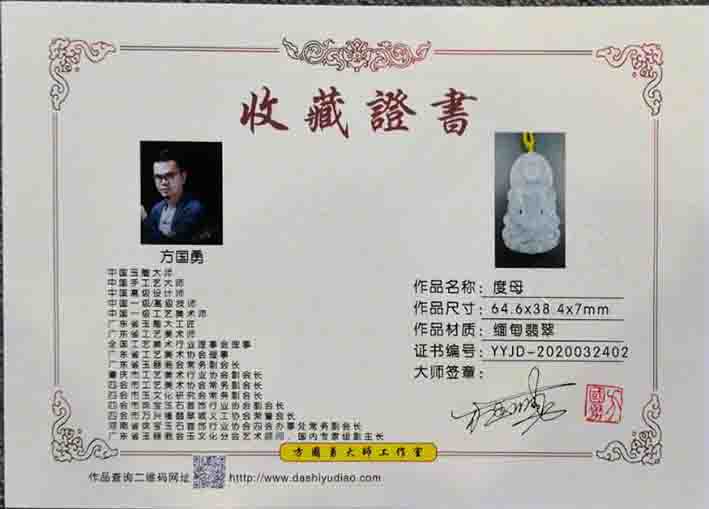 收藏證書
方国勇
中国玉雕大师
中国手工艺大师
中国高级设计师
中国一级/高级技师
中国一级工艺美术师
广东省玉雕大工匠
广东省工艺美术师
全国工艺美术行业理事会理事
广东省工艺美术协会理事
广东省玉器商会常务副会长
肇庆市工艺美术行业协会副会长
四会市工艺美术协会常务副会长
四会市玉文化研究会常务副会长
四会市珠宝玉石首饰行业协会副会长
四会市万兴隆翡翠城义工协会荣誉会长
河南省珠宝玉石首饰行业协会四会办事处常务副会长
广东省玉器商会玉文化分会艺术顾问、国内专家组副主长
作品名称：度母
作品尺寸：64.6x38.4x7mm
作品材质：缅甸翡翠
证书编号：YYJD-2020032402
大师签章：
方国勇大师工作室
作品查询二维码网址 http://www.dashiyudiao.com